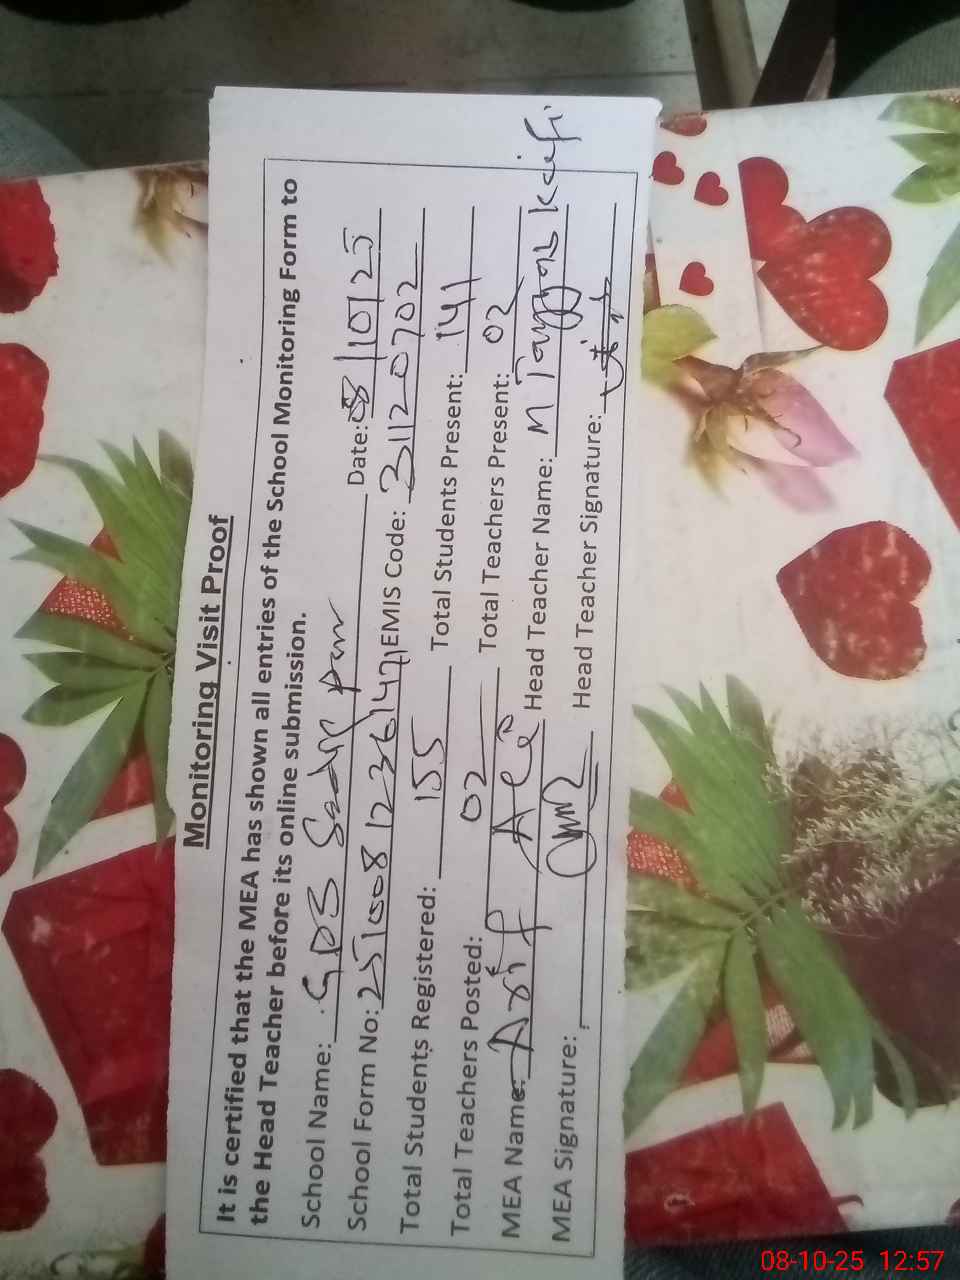 Monitoring Visit Proof
It is certified that the MEA has shown all entries of the School Monitoring Form to
the Head Teacher before its online submission.
School Name: GPS Sadiq pur Date: 08/10/25
School Form No: 251008123614271 EMIS Code: 31120702
Total Students Registered: 155 Total Students Present: 141
Total Teachers Posted: 02 Total Teachers Present: 02
MEA Name: Asif Ali Head Teacher Name: M Kaifi
MEA Signature: Head Teacher Signature:
08-10-25 12:57